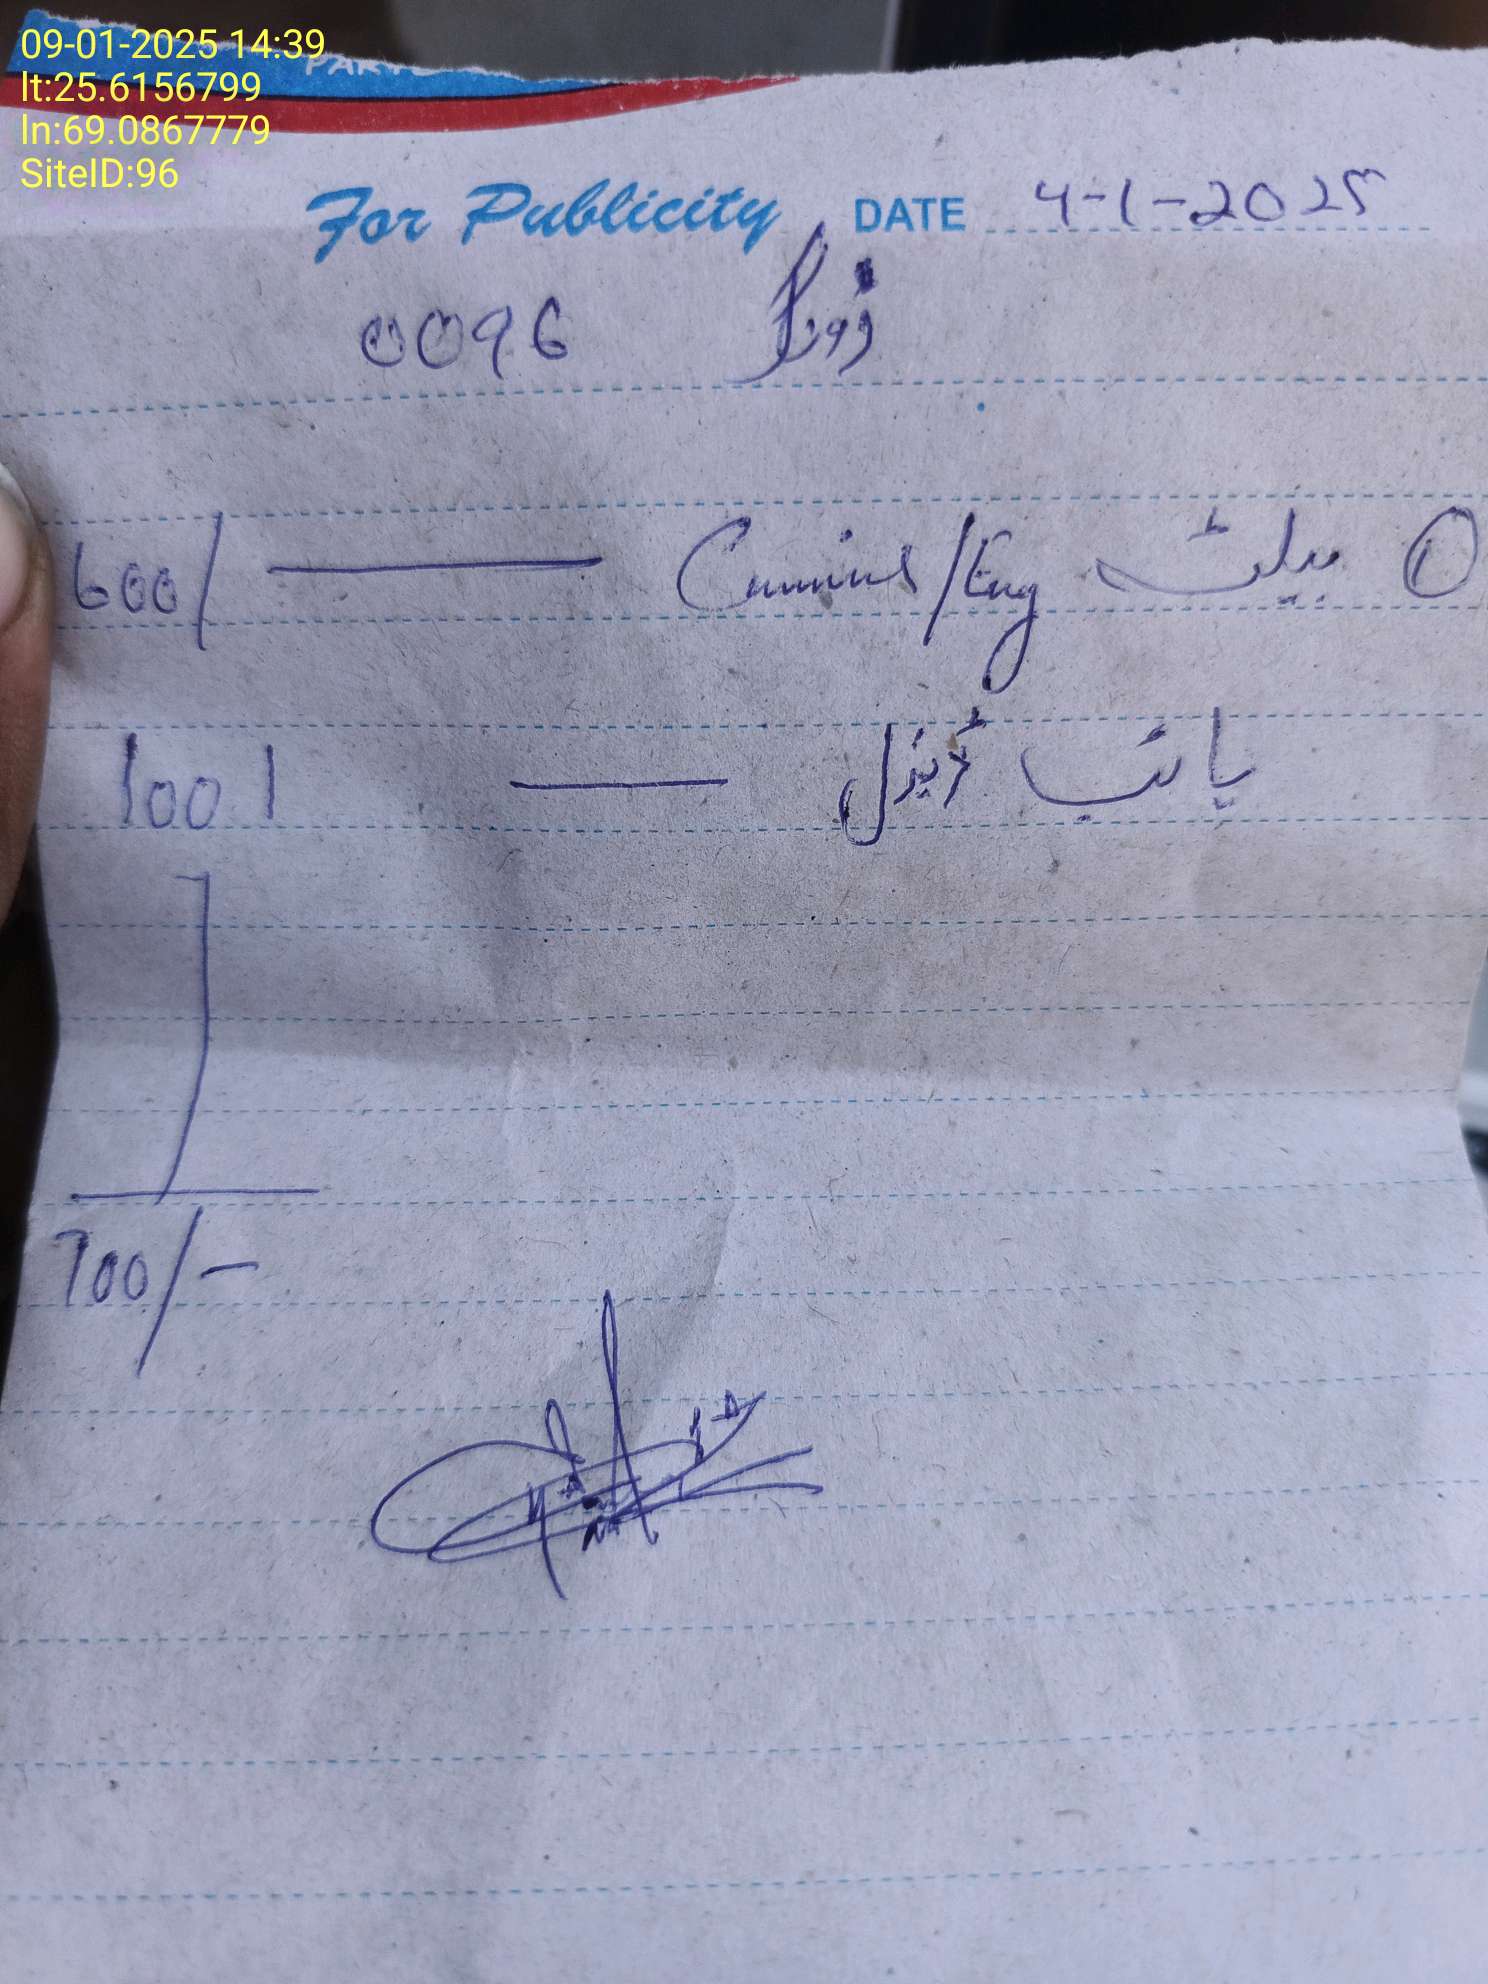 09-01-2025 14:39
lt:25.6156799
ln:69.0867779
SiteID:96
For Publicity DATE 4-1-2025
0096
① بیلٹ Cummins/Eng — 600/
پائپ ڈیزل — 100/
700/-